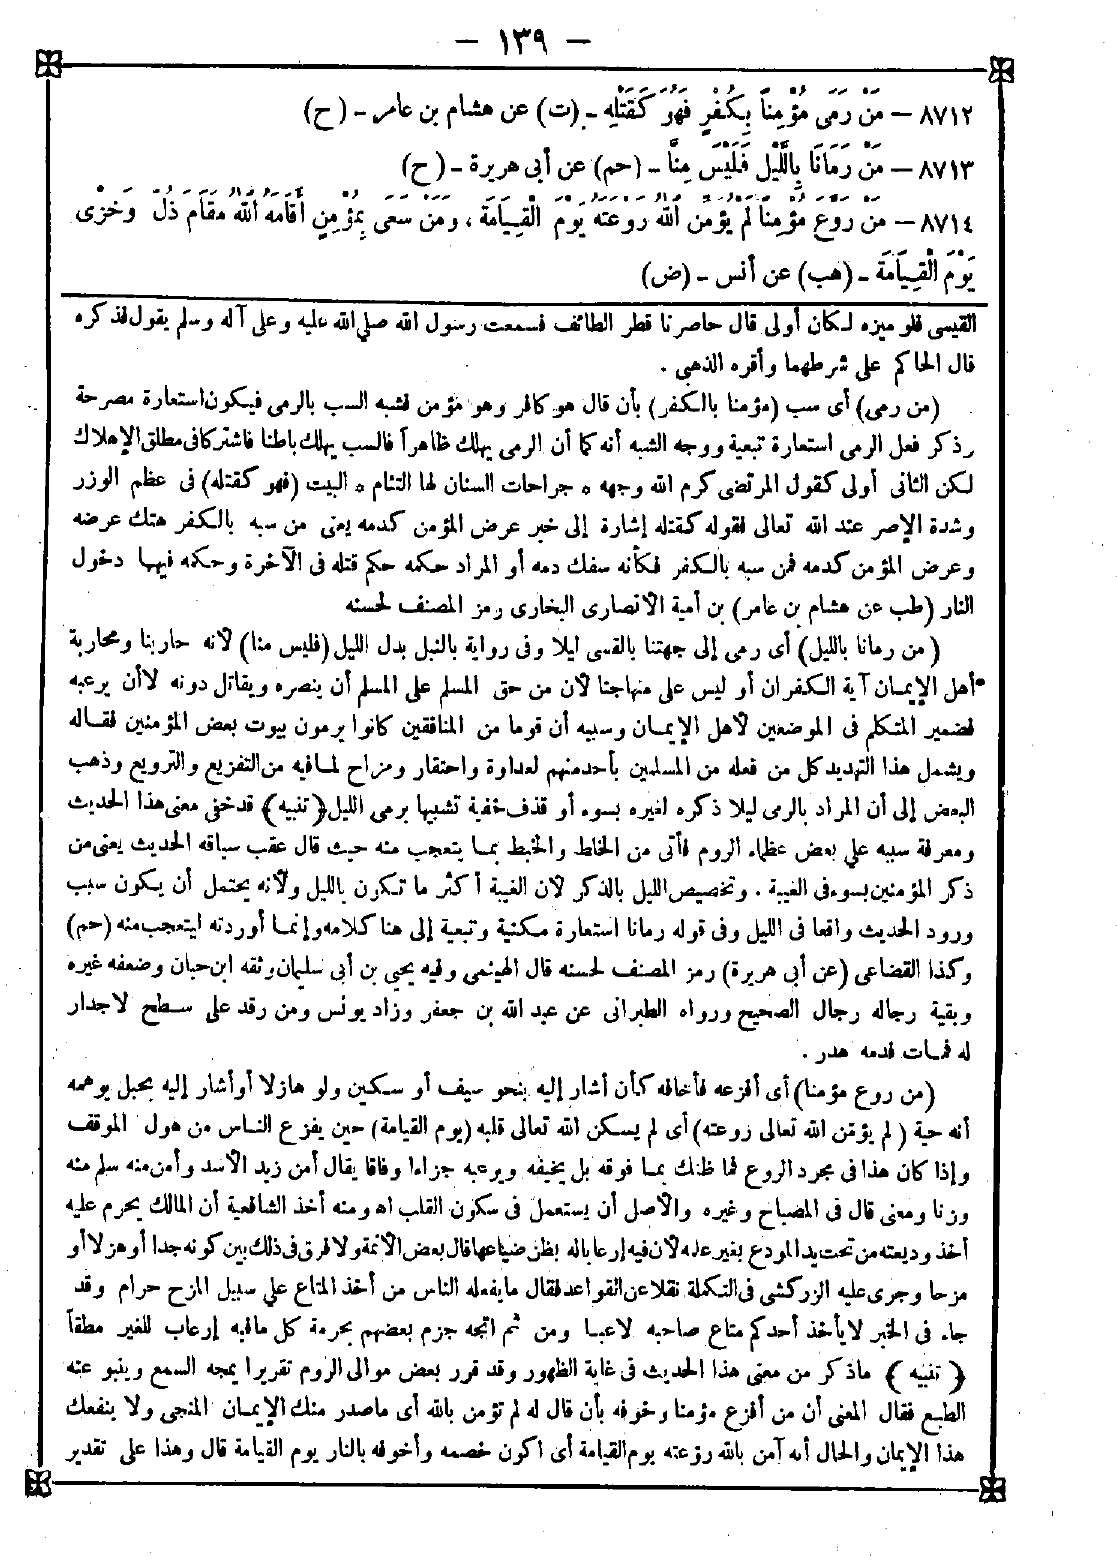 - ١٣٩ -
٨٧١٢ – مَنْ رَمَى مُؤْمِنًا بِكُفْرٍ فَهُوَ كَقَتْلِهِ - (ت) عن هشام بن عامر - (ح)
٨٧١٣ – مَنْ رَمَانَا بِاللَّيْلِ فَلَيْسَ مِنَّا - (حم) عن أبى هريرة - (ح)
٨٧١٤ – مَنْ رَوَّعَ مُؤْمِنًا لَمْ يُؤَمِّنِ اللهُ رَوْعَتَهُ يَوْمَ الْقِيَامَةِ ، وَمَنْ سَعَى بِمُؤْمِنٍ أَقَامَهُ اللهُ مَقَامَ ذُلٍّ وَخِزْىٍ
يَوْمَ الْقِيَامَةِ - (هب) عن أنس - (ض)
القيسى فلو ميزه لكان أولى قال حاصرنا قطر الطائف فسمعت رسول الله صلى الله عليه وعلى آله وسلم يقول فذكره
قال الحاكم على شرطهما وأقره الذهبى .
(من رمى) أى سب (مؤمنا بالكفر) بأن قال هو كافر وهو مؤمن فشبه السب بالرمى فيكون استعارة مصرحة
رذكر فعل الرمى استعارة تبعية ووجه الشبه أنه كما أن الرمى يهلك ظاهرآ فالسب يهلك باطنا فاشتركا فى مطلق الإهلاك
لكن الثانى أولى كقول المرتضى كرم الله وجهه ه جراحات السنان لها التئام ه البيت (فهو كقتله) فى عظم الوزر
وشدة الإصر عند الله تعالى فقوله كقتله إشارة إلى خبر عرض المؤمن كدمه يعنى من سبه بالكفر هتك عرضه
وعرض المؤمن كدمه فمن سبه بالكفر فكأنه سفك دمه أو المراد حكمه حكم قتله فى الآخرة وحكمه فيها دخول
النار (طب عن هشام بن عامر) بن أمية الأنصارى البخارى رمز المصنف لحسنه
(من رمانا بالليل) أى رمى إلى جهتنا بالقسى ليلا وفى رواية بالنبل بدل الليل (فليس منا) لأنه حاربنا ومحاربة
أهل الإيمان آية الكفران أو ليس على منهاجنا لأن من حق المسلم على المسلم أن ينصره ويقاتل دونه لا أن يرعبه
فضمير المتكلم فى الموضعين لأهل الإيمان وسببه أن قوما من المنافقين كانوا يرمون بيوت بعض المؤمنين فقاله
ويشمل هذا التهديد كل من فعله من المسلمين بأحد منهم لعداوة واحتقار ومزاح لما فيه من التفزيع والترويع وذهب
البعض إلى أن المراد بالرمى ليلا ذكره لغيره بسوء أو قذف خفية تشبيها برمى الليل ﴿ تنبيه ﴾ قد خفى معنى هذا الحديث
ومعرفة سببه على بعض عظماء الروم فأتى من الخلط والخبط بما يتعجب منه حيث قال عقب سياقه الحديث يعنى من
ذكر المؤمنين بسوء فى الغيبة . وتخصيص الليل بالذكر لأن الغيبة أكثر ما تكون بالليل ولأنه يحتمل أن يكون سبب
ورود الحديث واقعا فى الليل وفى قوله رمانا استعارة مكنية وتبعية إلى هنا كلامه وإنما أوردته ليتعجب منه (حم)
وكذا القضاعى (عن أبى هريرة) رمز المصنف لحسنه قال الهيثمى وفيه يحيى بن أبى سليمان وثقه ابن حبان وضعفه غيره
وبقية رجاله رجال الصحيح ورواه الطبرانى عن عبد الله بن جعفر وزاد يونس ومن رقد على سطح لا جدار
له فمات فدمه هدر .
(من روع مؤمنا) أى أفزعه فأخافه كأن أشار إليه بنحو سيف أو سكين ولو هازلا أو أشار إليه بحبل يوهمه
أنه حية (لم يؤمن الله تعالى روعته) أى لم يسكن الله تعالى قلبه (يوم القيامة) حين يفزع الناس من هول الموقف
وإذا كان هذا فى مجرد الروع فما ظنك بما فوقه بل يخيفه ويرعبه جزاءا وفاقا يقال أمن زيد الأسد وأمن منه سلم منه
وزنا ومعنى قال فى المصباح وغيره والأصل أن يستعمل فى سكون القلب اه ومنه أخذ الشافعية أن المالك يحرم عليه
أخذ وديعته من تحت يد المودع بغير علمه لأن فيه إرعابا له بظن ضياعها قال بعض الأئمة ولا فرق فى ذلك بين كونه جدا أو هزلا أو
مزحا وجرى عليه الزركشى فى التكملة نقلا عن القواعد فقال ما يفعله الناس من أخذ المتاع على سبيل المزح حرام وقد
جاء فى الخبر لا يأخذ أحدكم متاع صاحبه لاعبا ومن ثم اتجه جزم بعضهم بحرمة كل ما فيه إرعاب للغير مطقاً
﴿ تنبيه ﴾ ما ذكر من معنى هذا الحديث فى غاية الظهور وقد قرر بعض موالى الروم تقريرا يمجه السمع وينبو عنه
الطبع فقال المعنى أن من أفزع مؤمنا وخوفه بأن قال له لم تؤمن بالله أى ما صدر منك الإيمان المنجى ولا ينفعك
هذا الإيمان والحال أنه آمن بالله روّعته يوم القيامة أى أكون خصمه وأخوفه بالنار يوم القيامة قال وهذا على تقدير